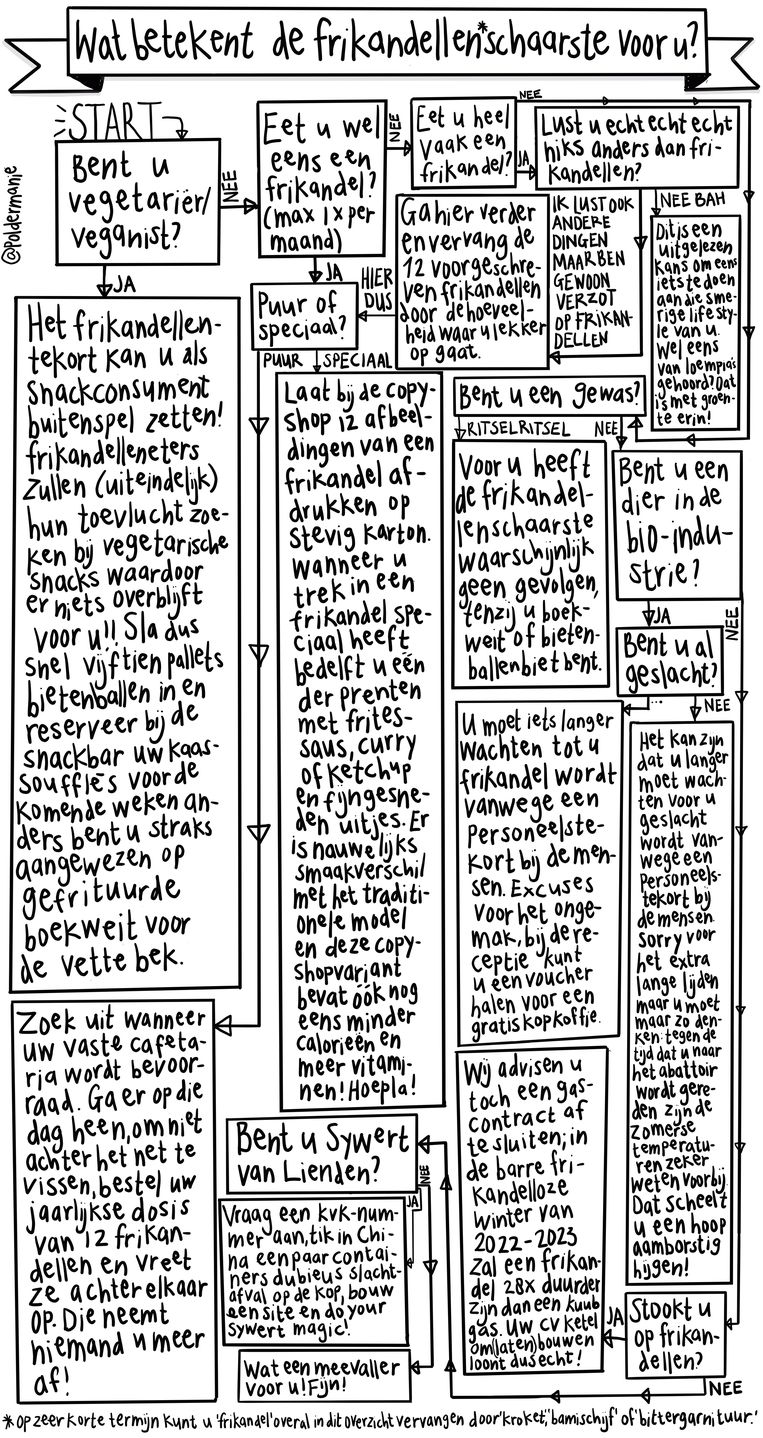 Wat betekent de frikandellen*schaarste voor u?
START
@Poldermanie
Bent u
vegetariër/
veganist?
NEE
JA
Het frikandellen-
tekort kan u als
snackconsument
buitenspel zetten!
frikandelleneters
zullen (uiteindelijk)
hun toevlucht zoe-
ken bij vegetarische
snacks waardoor
er niets overblijft
voor u!! Sla dus
snel vijftien pallets
bietenballen in en
reserveer bij de
snackbar uw kaas-
soufflés voor de
komende weken an-
ders bent u straks
aangewezen op
gefrituurde
boekweit voor
de vette bek.
Eet u wel
eens een
frikandel?
(max 1x per
maand)
NEE
JA
Puur of
speciaal?
PUUR
SPECIAAL
Zoek uit wanneer
uw vaste cafeta-
ria wordt bevoor-
raad. Ga er op die
dag heen, om niet
achter het net te
vissen, bestel uw
jaarlijkse dosis
van 12 frikan-
dellen en vreet
ze achter elkaar
op. Die neemt
niemand u meer
af!
Laat bij de copy-
shop 12 afbeel-
dingen van een
frikandel af-
drukken op
stevig karton.
Wanneer u
trek in een
frikandel spe-
ciaal heeft
bedelft u één
der prenten
met frites-
saus, curry
of ketchup
en fijngesne-
den uitjes. Er
is nauwelijks
smaakverschil
met het traditi-
onele model
en deze copy-
shopvariant
bevat óók nog
eens minder
calorieën en
meer vitami-
nen! Hoepla!
Eet u heel
vaak een
frikandel?
NEE
JA
Lust u echt echt echt
hiks anders dan fri-
kandellen?
IK LUST OOK
ANDERE
DINGEN
MAAR BEN
GEWOON
VERZOT
OP FRIKAN-
DELLEN
Ga hier verder
en vervang de
12 voorgeschre-
ven frikandellen
door de hoeveel-
heid waar u lekker
op gaat.
HIER
DUS
NEE BAH
Dit is een
uitgelezen
kans om eens
iets te doen
aan die sme-
rige lifesty-
le van u.
Wel eens
van loempia's
gehoord? Dat
is met groen-
te erin!
Bent u een gewas?
RITSELRITSEL
NEE
Voor u heeft
de frikandel-
lenschaarste
waarschijnlijk
geen gevolgen,
tenzij u boek-
weit of bieten-
ballenbiet bent.
Bent u een
dier in de
bio-indu-
strie?
JA
NEE
Bent u al
geslacht?
...
NEE
U moet iets langer
wachten tot u
frikandel wordt
vanwege een
personeelste-
kort bij de men-
sen. Excuses
voor het onge-
mak, bij de re-
ceptie kunt
u een voucher
halen voor een
gratis kop koffie.
Het kan zijn
dat u langer
moet wach-
ten voor u
geslacht
wordt van-
wege een
personeels-
tekort bij
de mensen.
Sorry voor
het extra
lange lijden
maar u moet
maar zo den-
ken: tegen de
tijd dat u naar
het abattoir
wordt gere-
den zijn de
zomerse
temperatu-
ren zeker
weten voorbij.
Dat scheelt
u een hoop
aamborstig
hijgen!
Stookt u
op frikan-
dellen?
JA
NEE
Wij advisen u
toch een gas-
contract af
te sluiten; in
de barre fri-
kandelloze
winter van
2022-2023
zal een frikan-
del 28x duurder
zijn dan een kuub
gas. Uw cv ketel
om(laten)bouwen
loont dus echt!
Bent u Sywert
van Lienden?
JA
NEE
Vraag een kvk-num-
mer aan, tik in Chi-
na een paar contai-
ners dubieus slacht-
afval op de kop, bouw
een site en do your
sywert magic!
Wat een meevaller
voor u! Fijn!
*op zeer korte termijn kunt u 'frikandel' overal in dit overzicht vervangen door 'kroket', 'bamischijf' of 'bittergarnituur.'